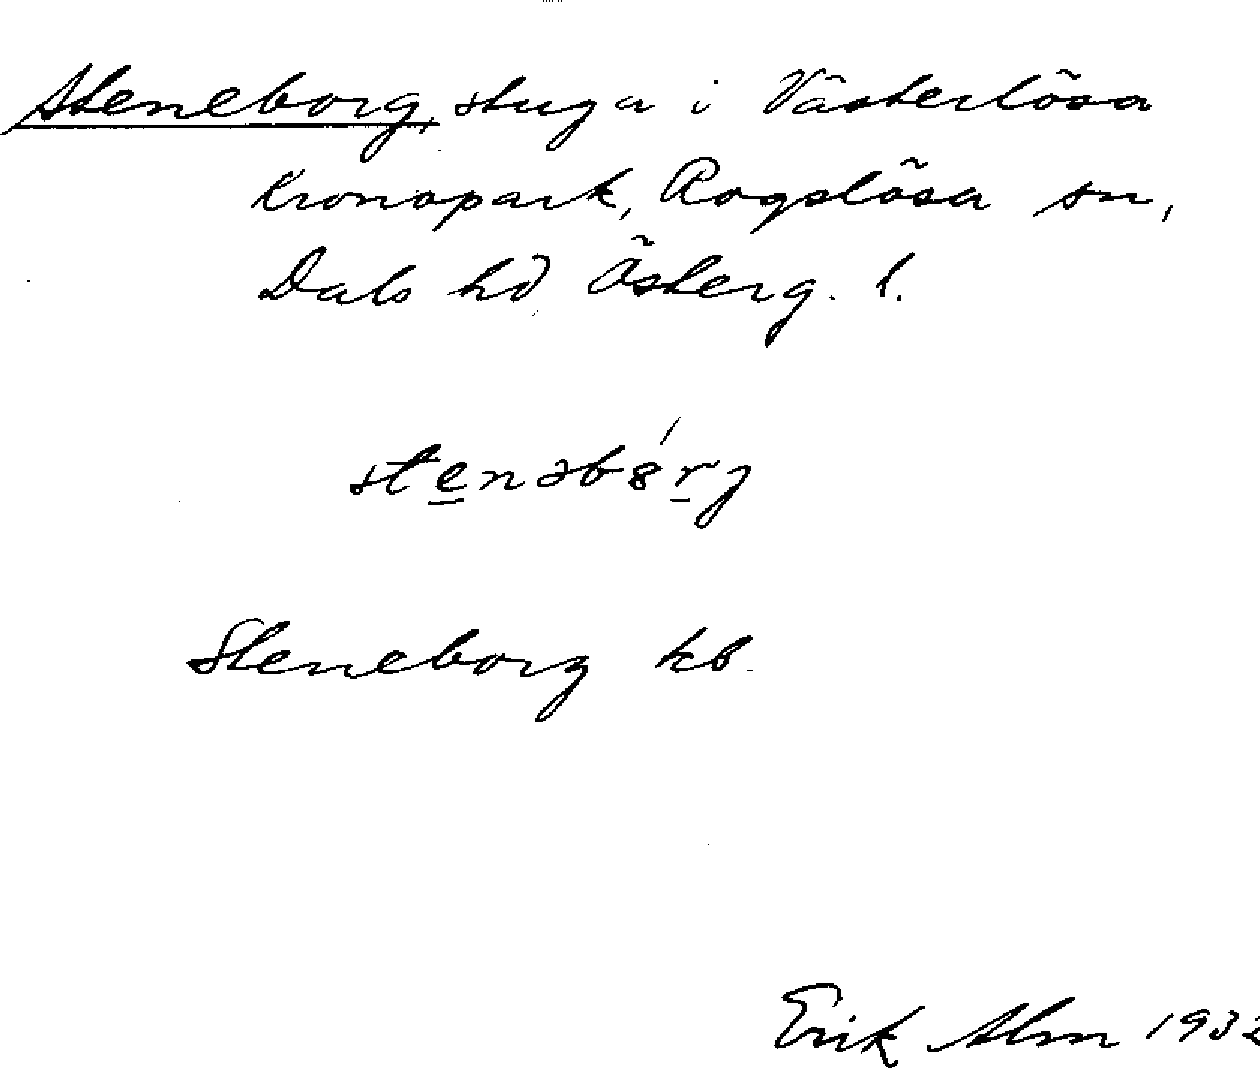 Steneborg, stuga i Västerlösa
Kronopark, Rogslösa sn,
Dals hd Österg. l.
Steneborg kb.
Erik Alm 1932